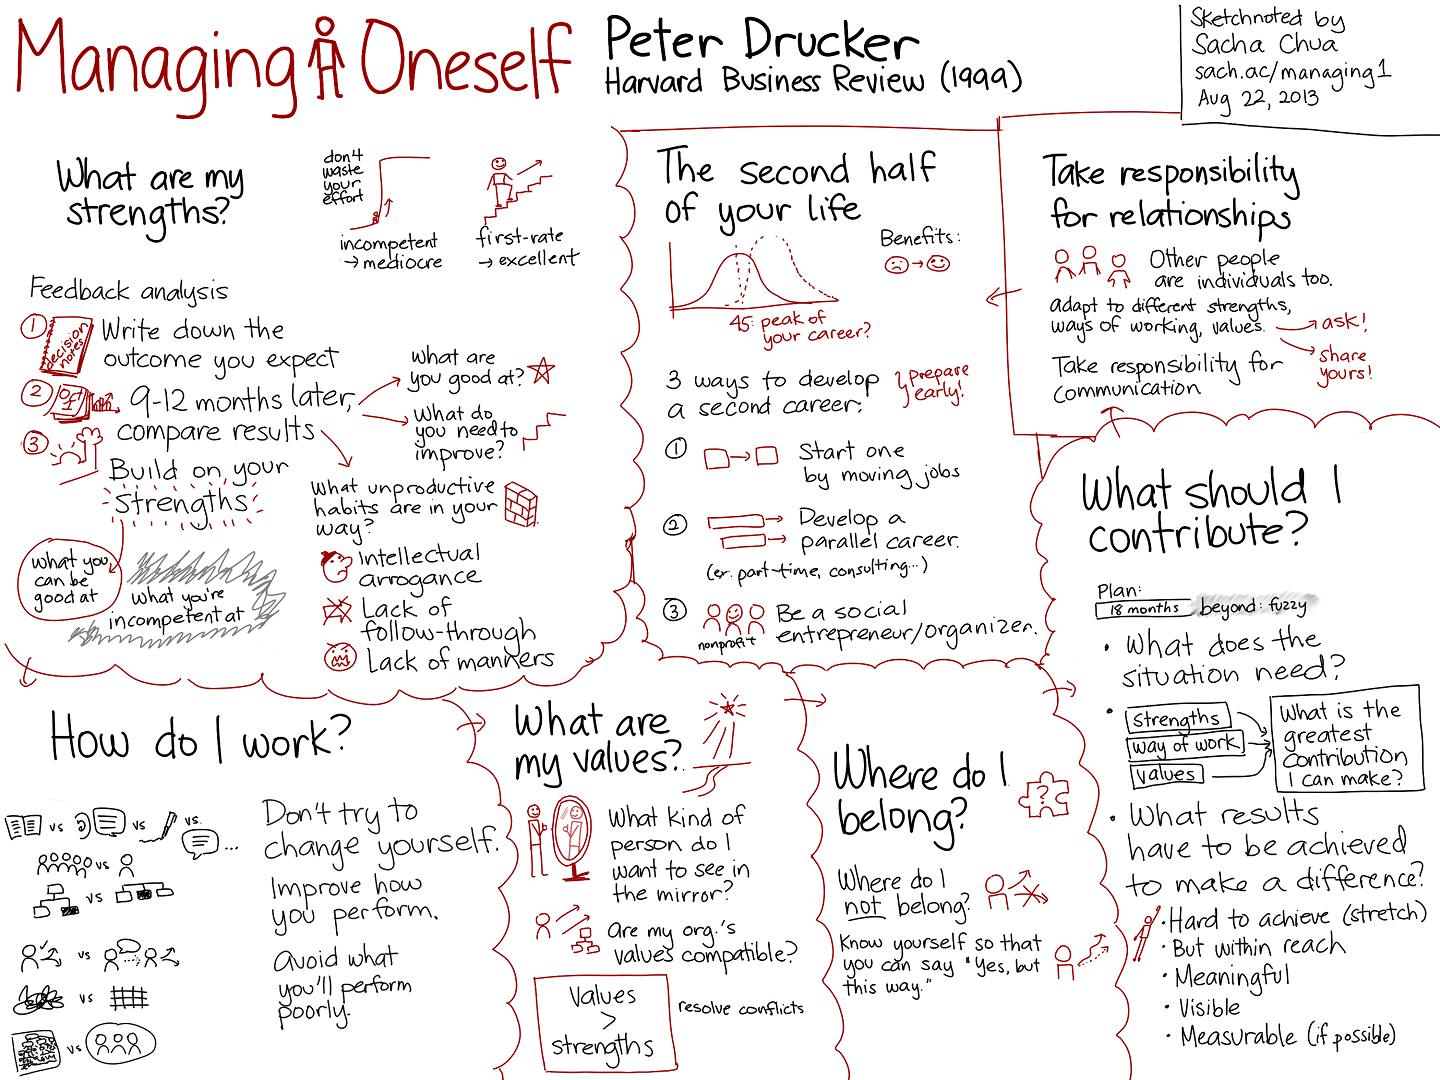 Managing Oneself
Peter Drucker
Harvard Business Review (1999)
Sketchnoted by
Sacha Chua
sach.ac/managing1
Aug 22, 2013
What are my
strengths?
don't
waste
your
effort
incompetent
→ mediocre
first-rate
→ excellent
Feedback analysis
1
decision
notes
Write down the
outcome you expect
2
9-12 months later,
compare results
3
Build on your
strengths
What are
you good at?
What do
you need to
improve?
What unproductive
habits are in your
way?
Intellectual
arrogance
Lack of
follow-through
Lack of manners
what you
can be
good at
what you're
incompetent at
How do I work?
vs
vs
vs
...
vs
vs
vs
vs
vs
Don't try to
change yourself.
Improve how
you perform.
Avoid what
you'll perform
poorly.
What are
my values?
What kind of
person do I
want to see in
the mirror?
Are my org.'s
values compatible?
Values
>
strengths
resolve conflicts
Where do I
belong?
?
Where do I
not belong?
Know yourself so that
you can say "Yes, but
this way."
What should I
contribute?
Plan:
18 months
beyond: fuzzy
• What does the
situation need?
• strengths
way of work
values
What is the
greatest
contribution
I can make?
• What results
have to be achieved
to make a difference?
• Hard to achieve (stretch)
• But within reach
• Meaningful
• Visible
• Measurable (if possible)
Take responsibility
for relationships
Other people
are individuals too.
adapt to different strengths,
ways of working, values.
→ ask!
→ share
yours!
Take responsibility for
communication
The second half
of your life
Benefits:
45: peak of
your career?
3 ways to develop
a second career:
prepare
early!
1
Start one
by moving jobs
2
Develop a
parallel career.
(ex. part-time, consulting...)
3
nonprofit
Be a social
entrepreneur/organizer.